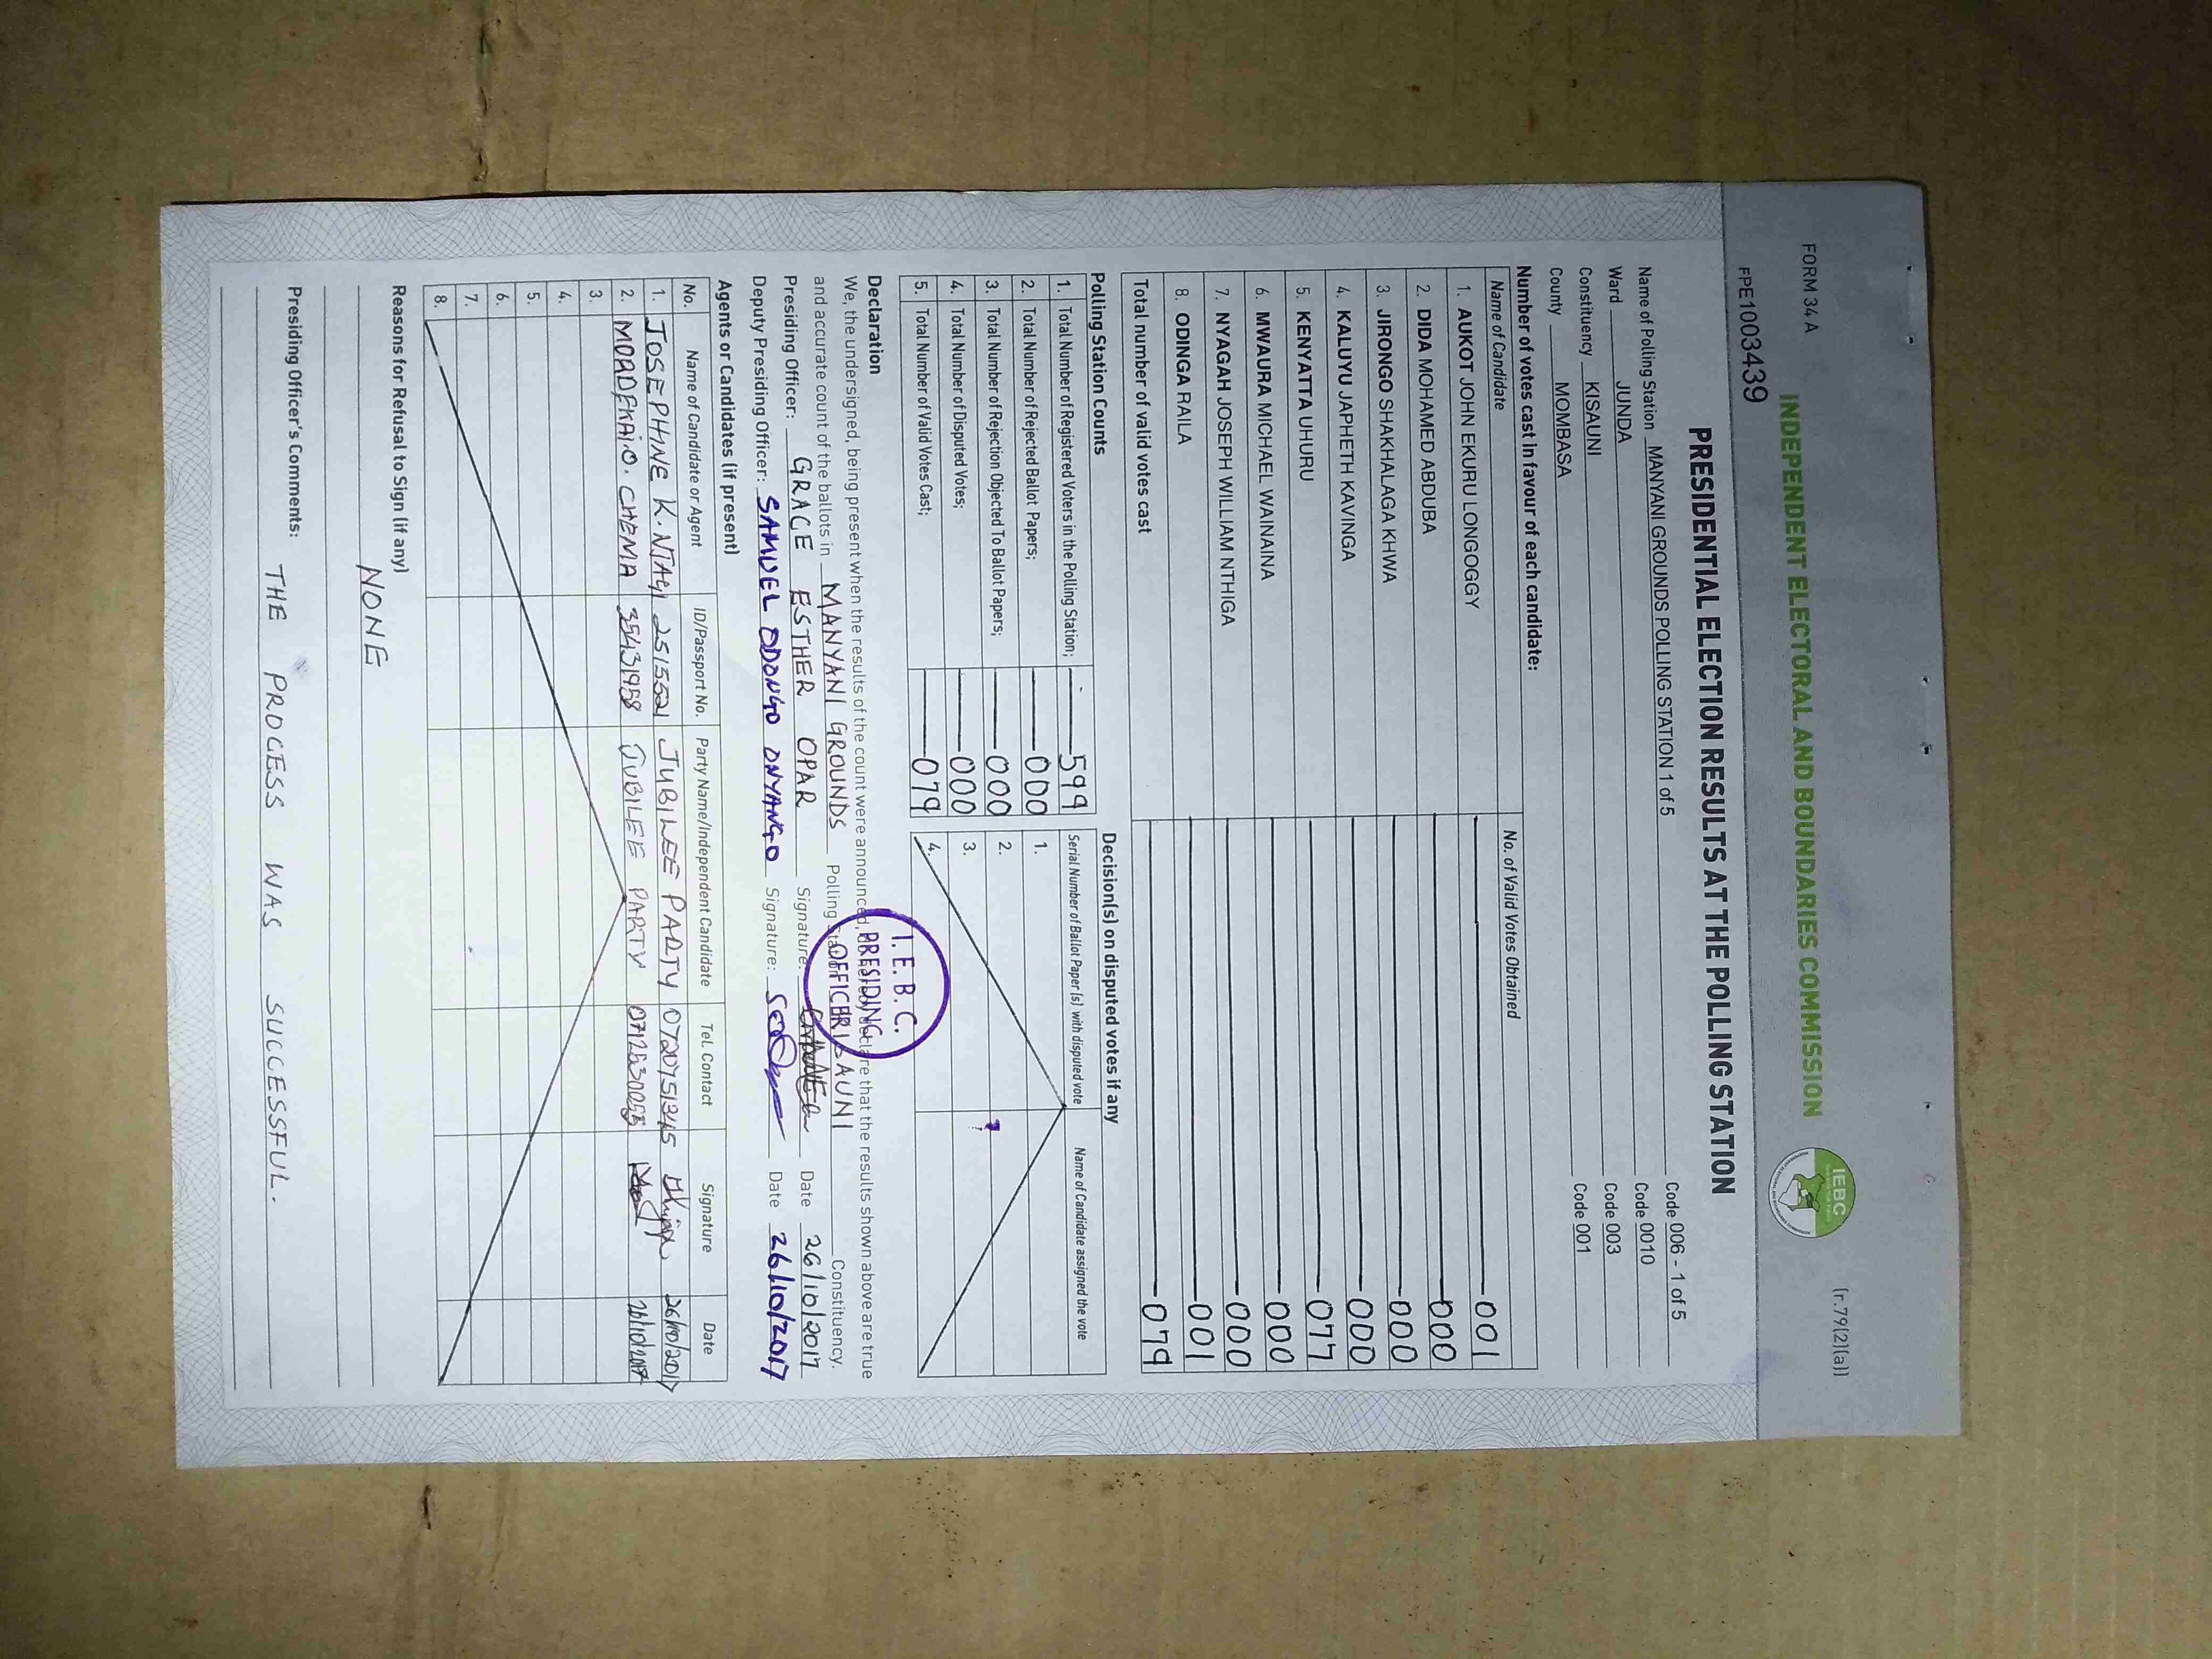 FORM 34 A
(r.79(2)(a))
INDEPENDENT ELECTORAL AND BOUNDARIES COMMISSION
IEBC
FPE1003439
PRESIDENTIAL ELECTION RESULTS AT THE POLLING STATION
Name of Polling Station MANYANI GROUNDS POLLING STATION 1 of 5 Code 006 - 1 of 5
Ward JUNDA Code 0010
Constituency KISAUNI Code 003
County MOMBASA Code 001
Number of votes cast in favour of each candidate:
Name of Candidate No. of Valid Votes Obtained
1. AUKOT JOHN EKURU LONGOGGY 001
2. DIDA MOHAMED ABDUBA 000
3. JIRONGO SHAKHALAGA KHWA 000
4. KALUYU JAPHETH KAVINGA 000
5. KENYATTA UHURU 077
6. MWAURA MICHAEL WAINAINA 000
7. NYAGAH JOSEPH WILLIAM NTHIGA 000
8. ODINGA RAILA 001
Total number of valid votes cast 079
Polling Station Counts
1. Total Number of Registered Voters in the Polling Station; 599
2. Total Number of Rejected Ballot Papers; 000
3. Total Number of Rejection Objected To Ballot Papers; 000
4. Total Number of Disputed Votes; 000
5. Total Number of Valid Votes Cast; 079
Decision(s) on disputed votes if any
Serial Number of Ballot Paper (s) with disputed vote Name of Candidate assigned the vote
1.
2.
3.
4.
Declaration
We, the undersigned, being present when the results of the count were announced, do hereby declare that the results shown above are true
and accurate count of the ballots in MANYANI GROUNDS Polling Station KISAUNI Constituency.
Presiding Officer: GRACE ESTHER OPAR Signature: Date 26/10/2017
Deputy Presiding Officer: SAMUEL ODONGO ONYANGO Signature: Date 26/10/2017
I. E. B. C.
PRESIDING
OFFICER
Agents or Candidates (if present)
No. Name of Candidate or Agent ID/Passport No. Party Name/Independent Candidate Tel. Contact Signature Date
1. JOSEPHINE K. 25155521 JUBILEE PARTY 0720751345 26/10/2017
2. CHEMA JUBILEE PARTY 26/10/2017
3.
4.
5.
6.
7.
8.
Reasons for Refusal to Sign (if any)
NONE
Presiding Officer's Comments:
THE PROCESS WAS SUCCESSFUL.